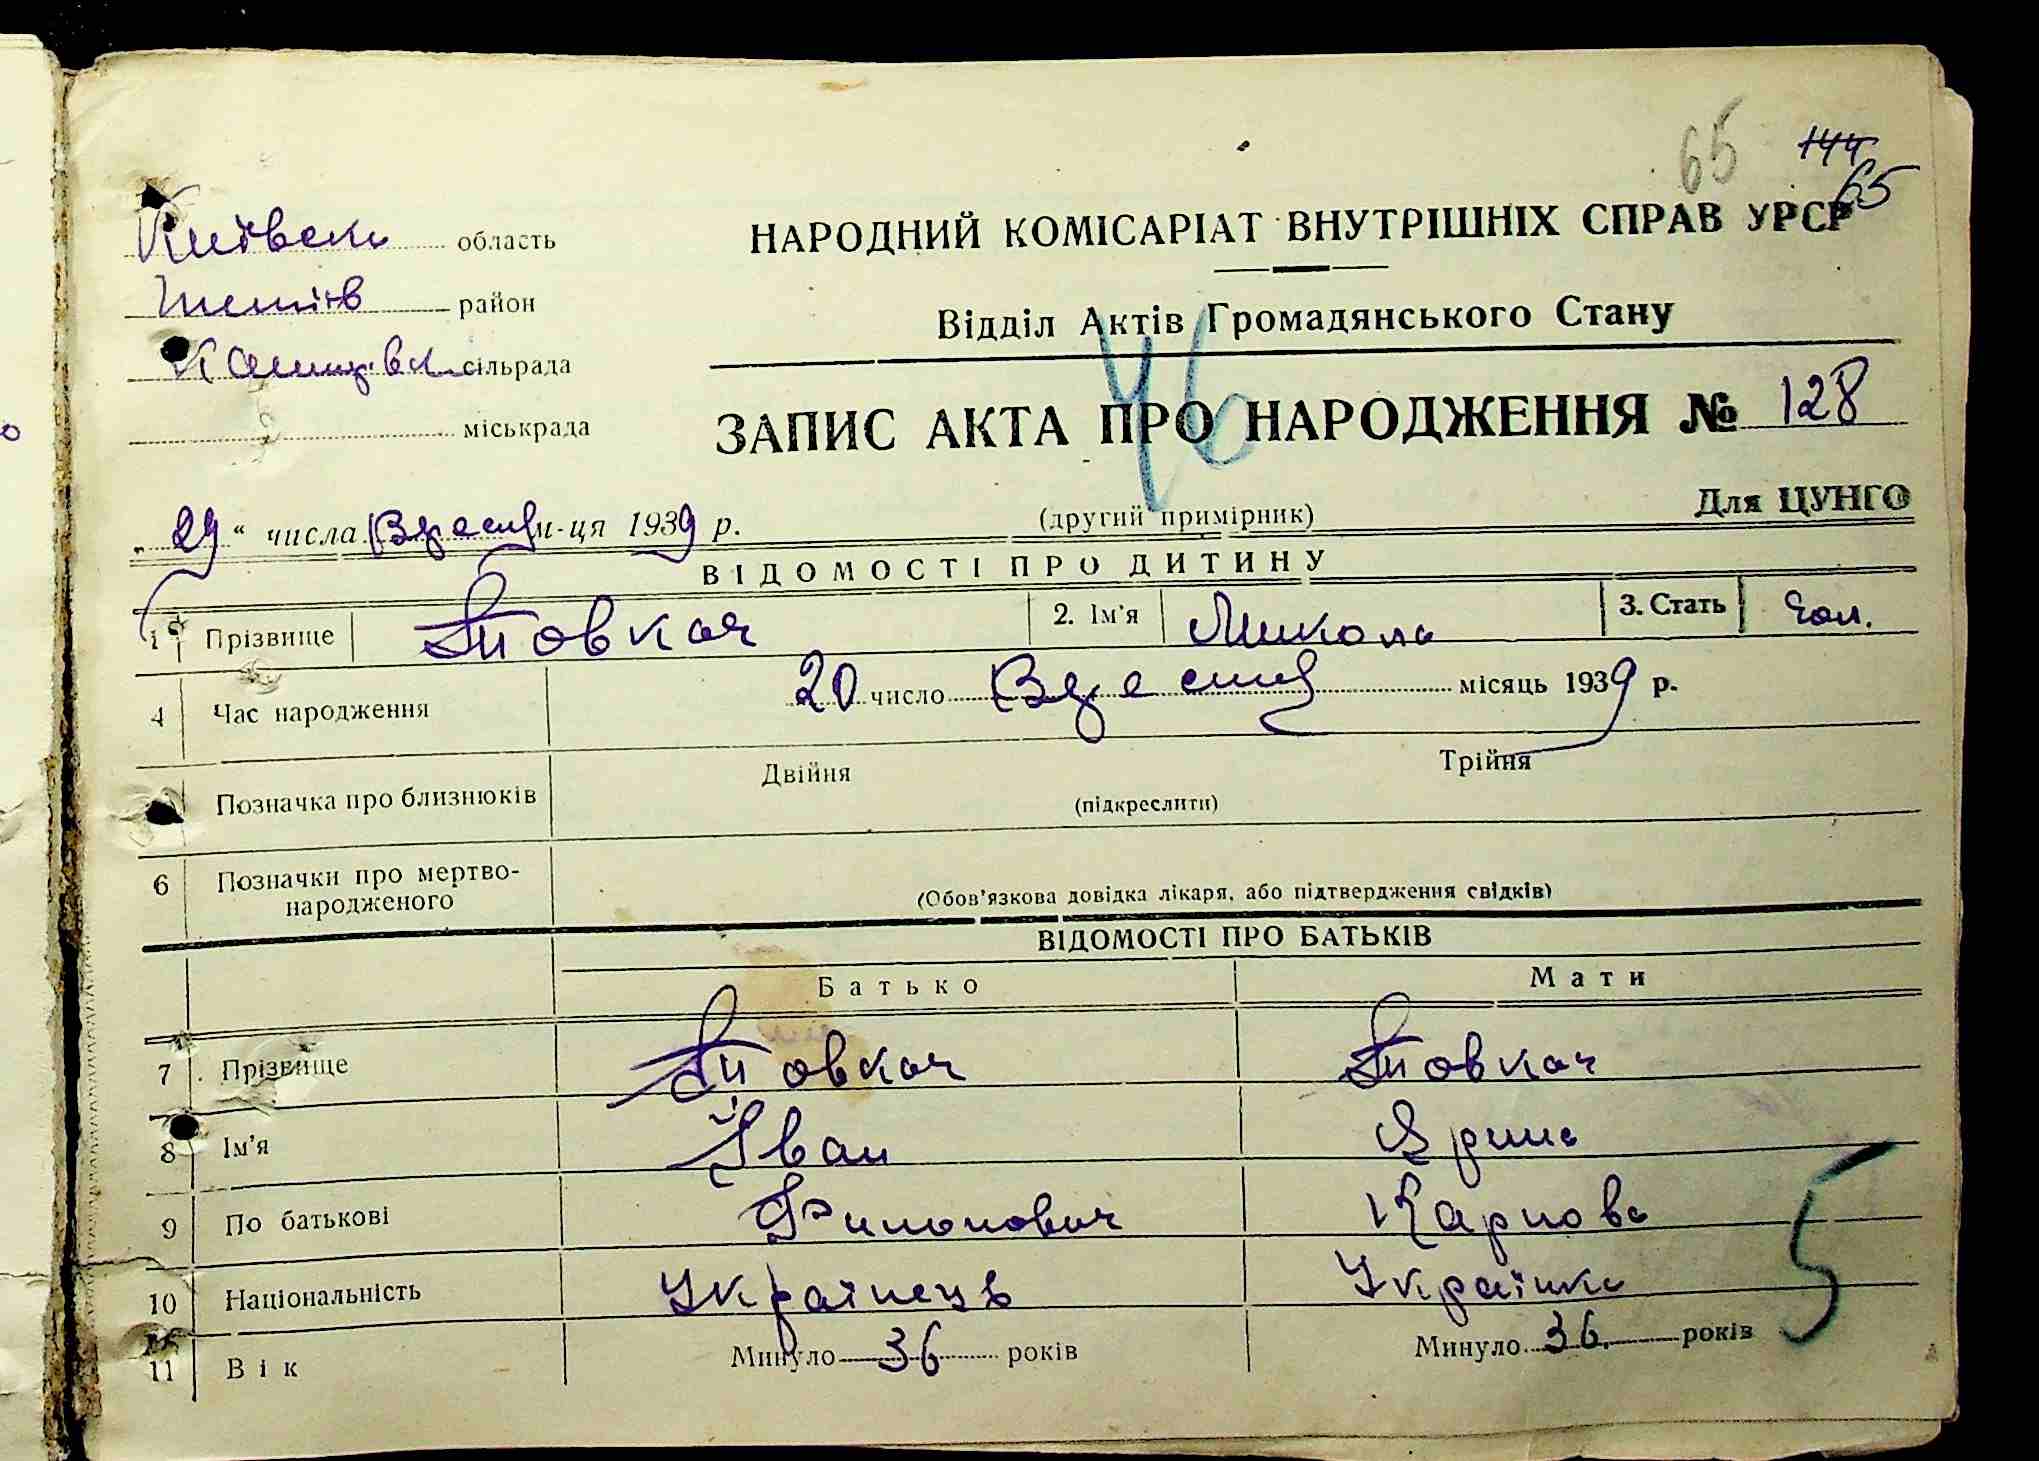 65 144
65
Київська область
НАРОДНИЙ КОМІСАРІАТ ВНУТРІШНІХ СПРАВ УРСР
район
Відділ Актів Громадянського Стану
сільрада
46
міськрада
ЗАПИС АКТА ПРО НАРОДЖЕННЯ № 128
„29“ числа Вресня м-ця 1939 р.
(другий примірник)
Для ЦУНГО
ВІДОМОСТІ ПРО ДИТИНУ
1 Прізвище Товкач 2. Ім'я Микола 3. Стать Чол.
4 Час народження 20 число Вресня місяць 1939 р.
Позначка про близнюків Двійня Трійня
(підкреслити)
6 Позначки про мертво-
народженого
(Обов'язкова довідка лікаря, або підтвердження свідків)
ВІДОМОСТІ ПРО БАТЬКІВ
Батько Мати
7 Прізвище Товкач Товкач
8 Ім'я Іван Ярина
9 По батькові Филонович Карпова
10 Національність Українець Українка
5
11 Вік Минуло 36 років Минуло 36 років